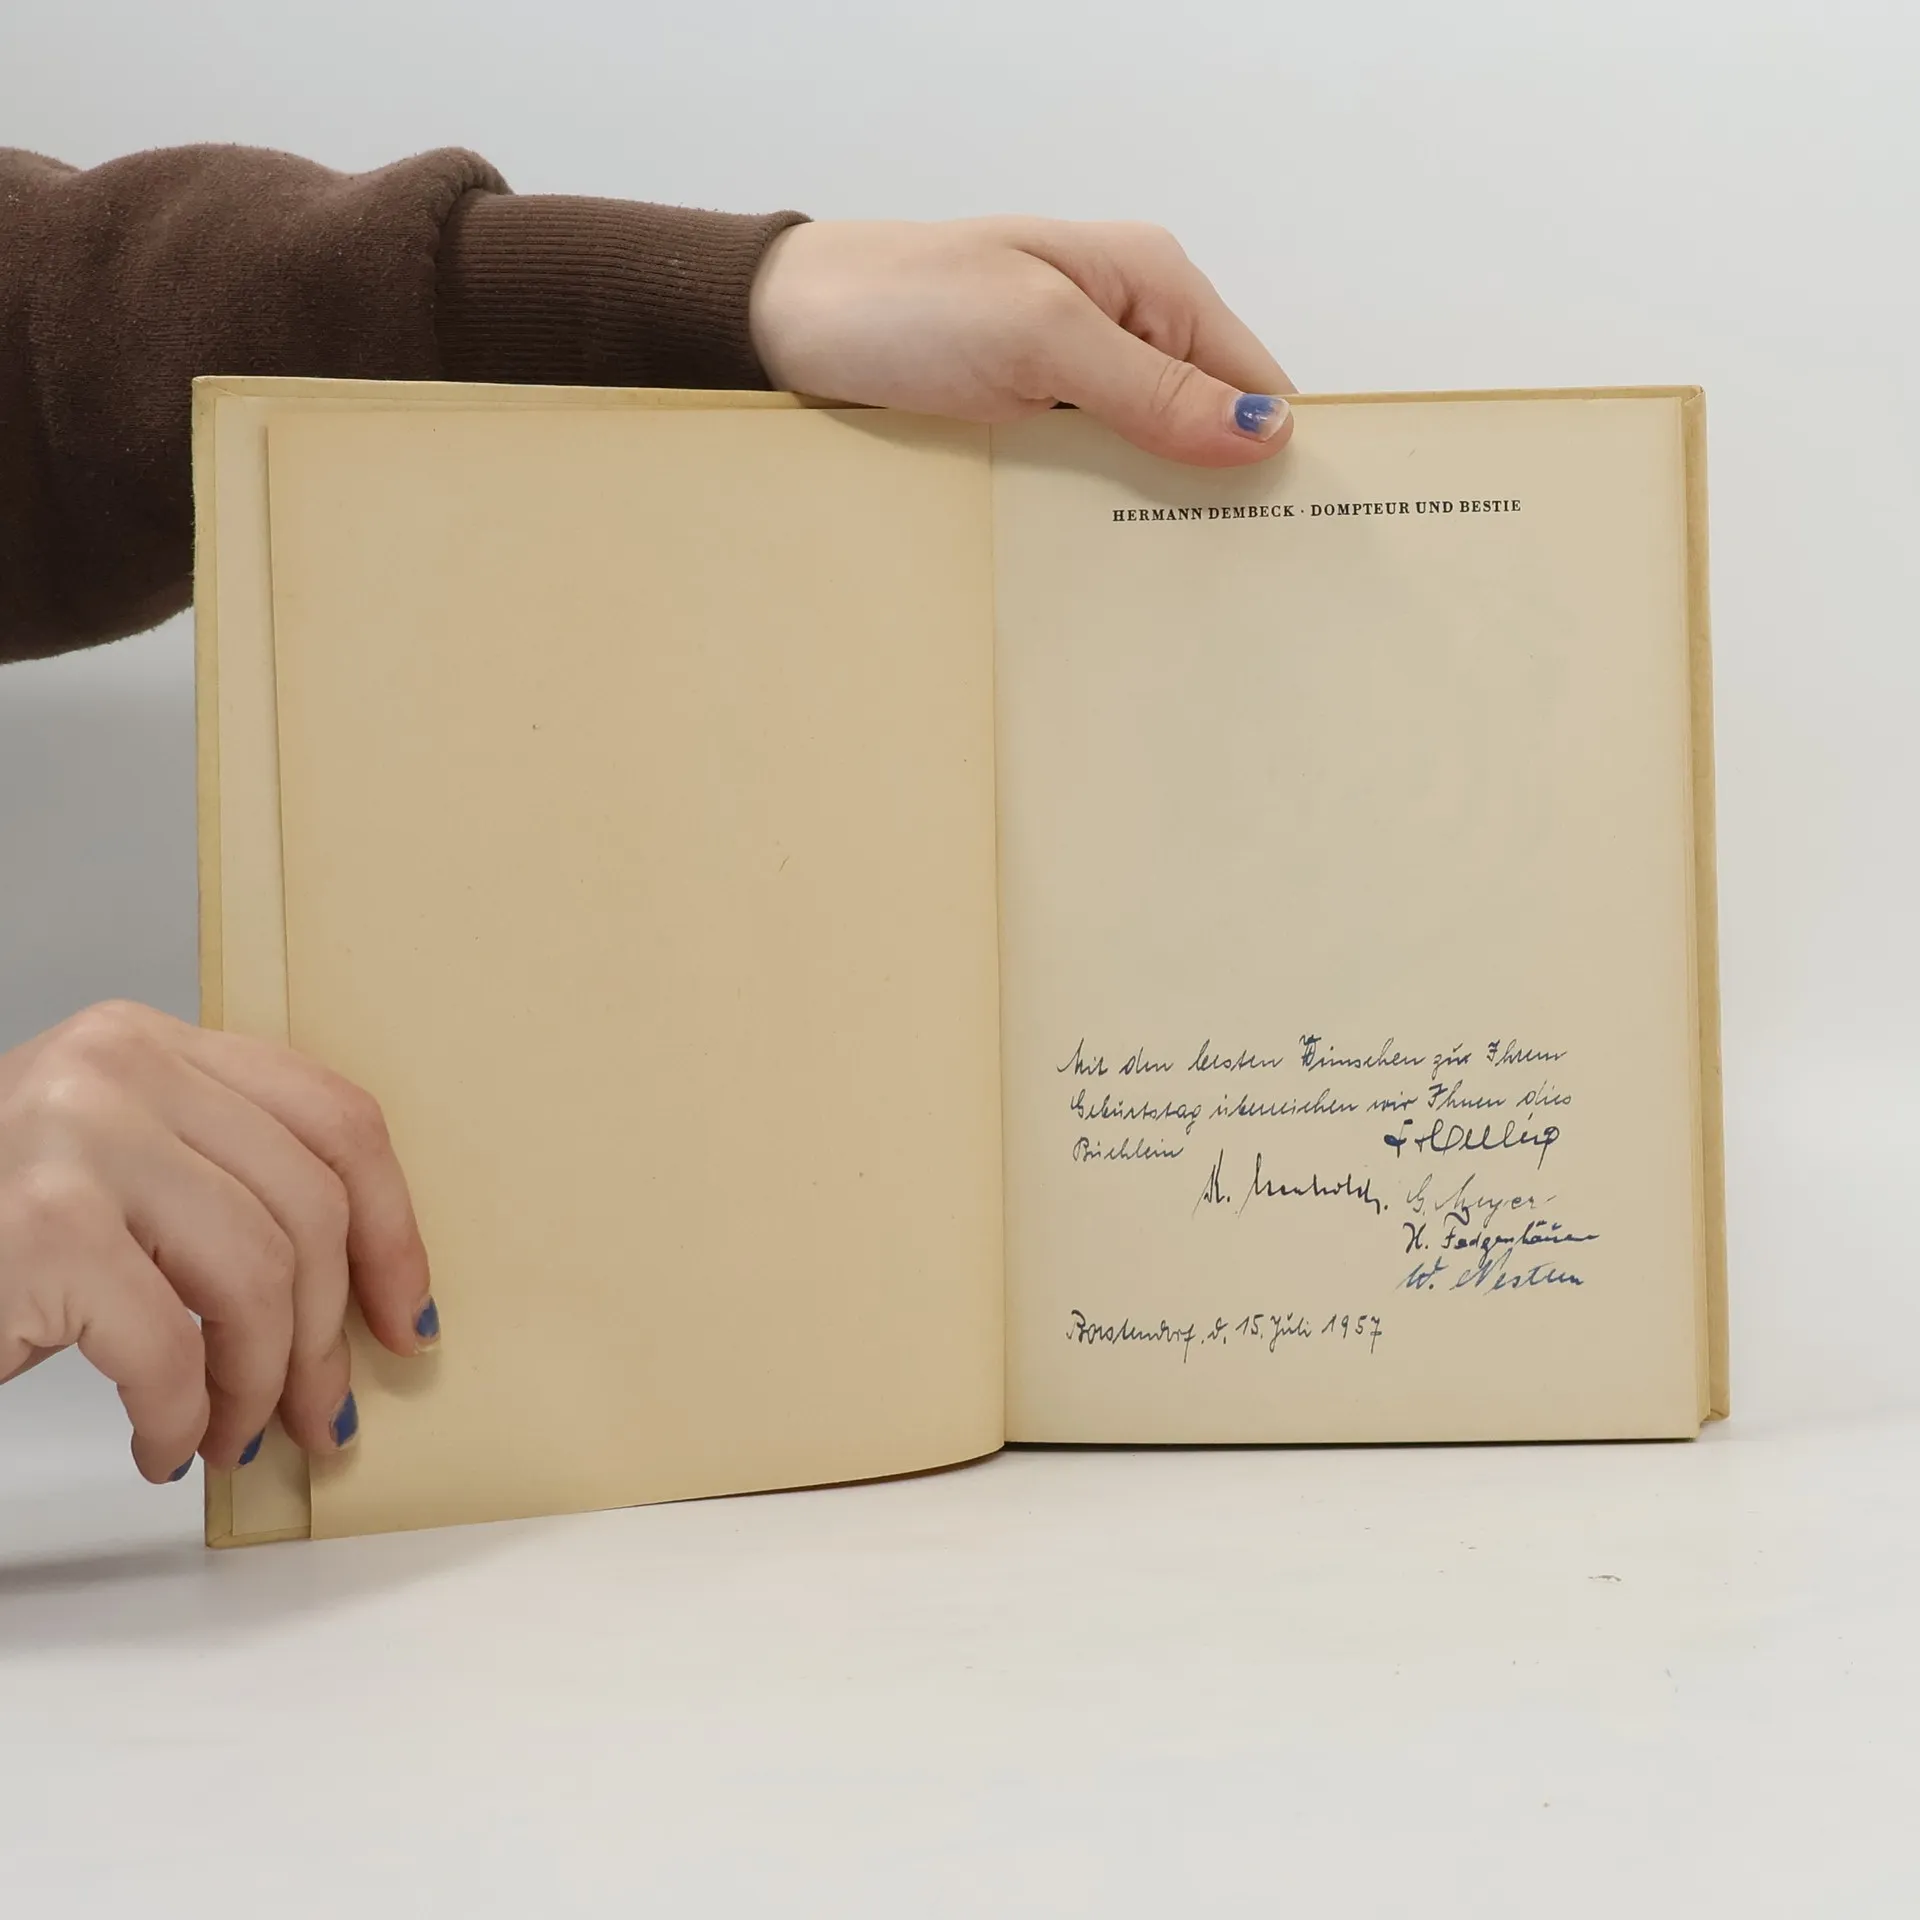 HERMANN DEMBECK · DOMPTEUR UND BESTIE
Mit den besten Wünschen zur Ihrem
Geburtstag überreichen wir Ihnen dies
Büchlein
K.
G. Meyer
H. Fedgenhäuer
W. Nestler
Borstendorf, d. 15. Juli 1957